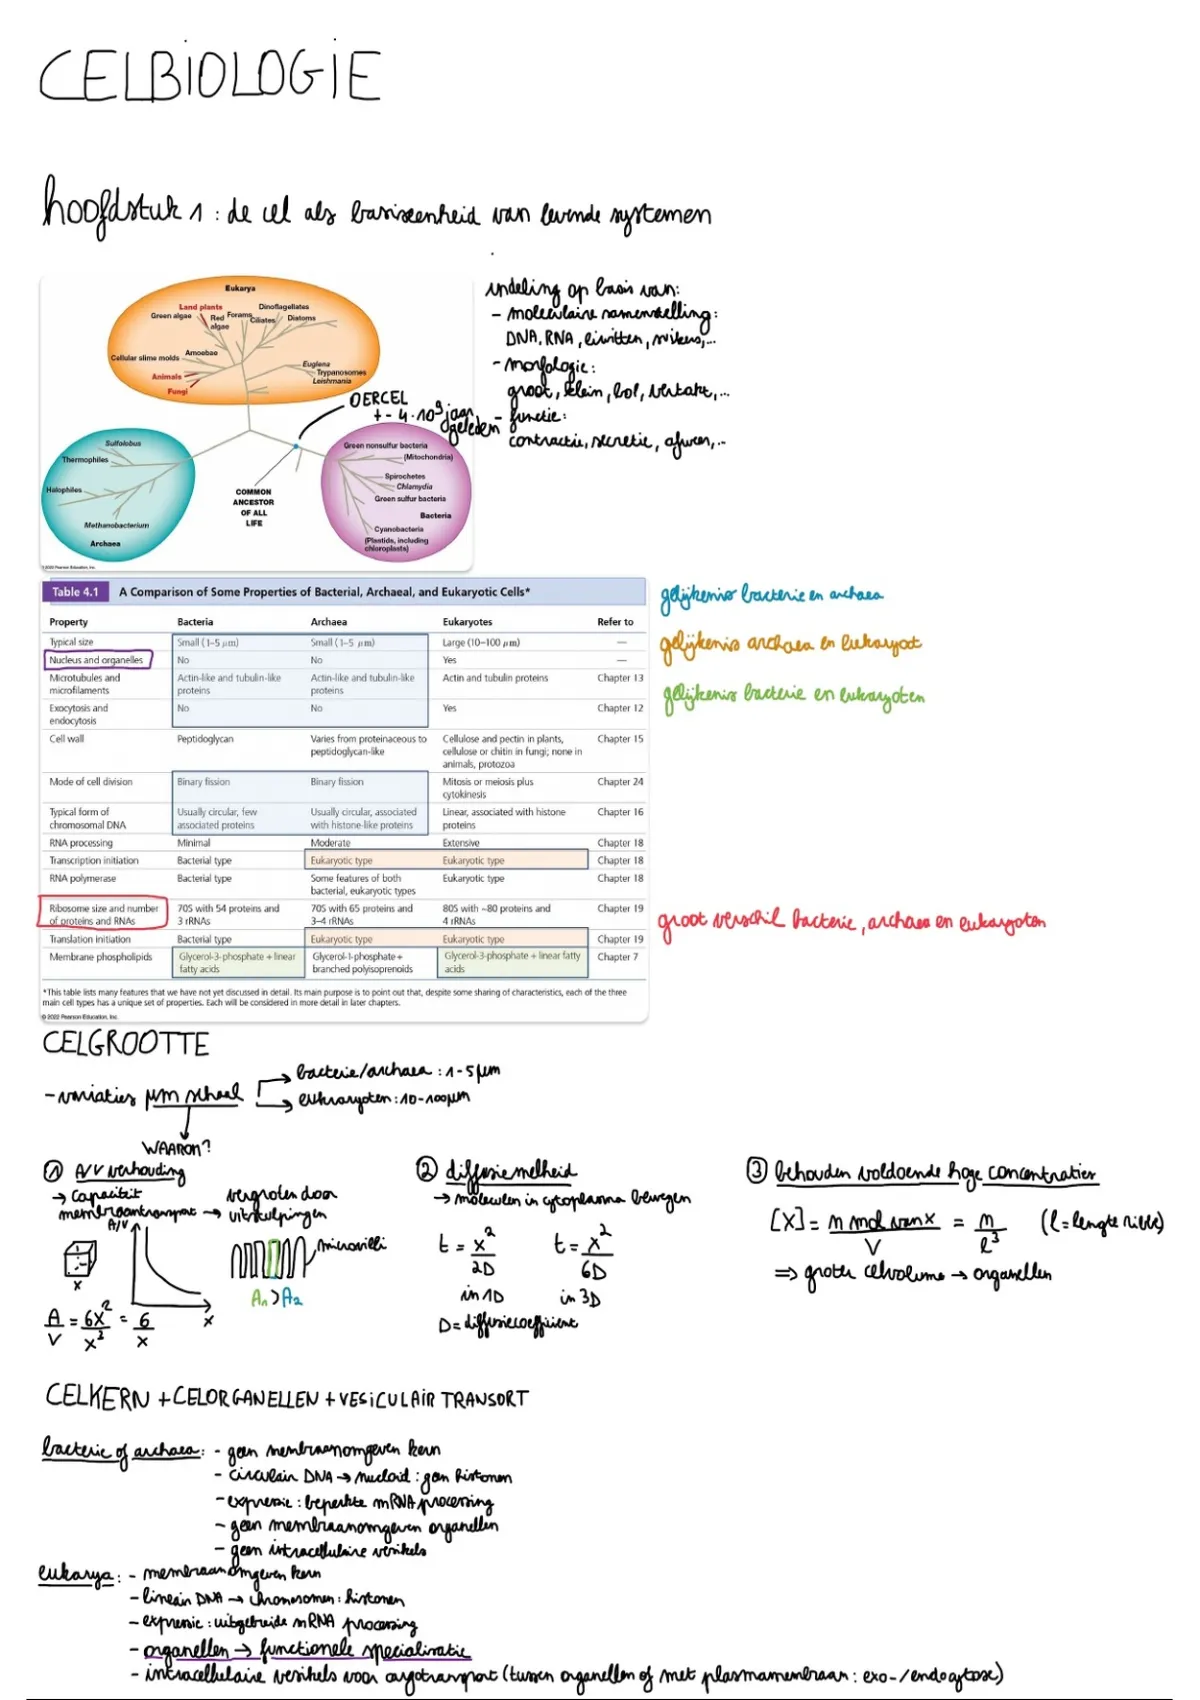 CELBIOLOGIE
hoofdstuk 1 : de cel als basiseenheid van levende systemen
Eukarya
Land plants
Green algae
Red algae
Forams
Ciliates
Dinoflagellates
Diatoms
Cellular slime molds
Amoebae
Animals
Fungi
Euglena
Trypanosomes
Leishmania
OERCEL
+- 4·10⁹ jaar
geleden
Sulfolobus
Thermophiles
Halophiles
Methanobacterium
Archaea
COMMON
ANCESTOR
OF ALL
LIFE
Green nonsulfur bacteria
(Mitochondria)
Spirochetes
Chlamydia
Green sulfur bacteria
Bacteria
Cyanobacteria
(Plastids, including
chloroplasts)
© 2022 Pearson Education, Inc.
indeling op basis van:
- moleculaire samenstelling:
DNA, RNA, eiwitten, suikers,...
- morfologie:
groot, klein, bol, vertakt,...
- functie:
contractie, secretie, afweer,...
Table 4.1 A Comparison of Some Properties of Bacterial, Archaeal, and Eukaryotic Cells*
Property Bacteria Archaea Eukaryotes Refer to
Typical size Small (1–5 μm) Small (1–5 μm) Large (10–100 μm) —
Nucleus and organelles No No Yes —
Microtubules and Actin-like and tubulin-like Actin-like and tubulin-like Actin and tubulin proteins Chapter 13
microfilaments proteins proteins
Exocytosis and No No Yes Chapter 12
endocytosis
Cell wall Peptidoglycan Varies from proteinaceous to Cellulose and pectin in plants, Chapter 15
peptidoglycan-like cellulose or chitin in fungi; none in
animals, protozoa
Mode of cell division Binary fission Binary fission Mitosis or meiosis plus Chapter 24
cytokinesis
Typical form of Usually circular, few Usually circular, associated Linear, associated with histone Chapter 16
chromosomal DNA associated proteins with histone-like proteins proteins
RNA processing Minimal Moderate Extensive Chapter 18
Transcription initiation Bacterial type Eukaryotic type Eukaryotic type Chapter 18
RNA polymerase Bacterial type Some features of both Eukaryotic type Chapter 18
bacterial, eukaryotic types
Ribosome size and number 70S with 54 proteins and 70S with 65 proteins and 80S with ~80 proteins and Chapter 19
of proteins and RNAs 3 rRNAs 3–4 rRNAs 4 rRNAs
Translation initiation Bacterial type Eukaryotic type Eukaryotic type Chapter 19
Membrane phospholipids Glycerol-3-phosphate + linear Glycerol-1-phosphate + Glycerol-3-phosphate + linear fatty Chapter 7
fatty acids branched polyisoprenoids acids
*This table lists many features that we have not yet discussed in detail. Its main purpose is to point out that, despite some sharing of characteristics, each of the three
main cell types has a unique set of properties. Each will be considered in more detail in later chapters.
© 2022 Pearson Education, Inc.
gelijkenis bacterie en archaea
gelijkenis archaea en eukaryoot
gelijkenis bacterie en eukaryoten
groot verschil bacterie, archaea en eukaryoten
CELGROOTTE
- variaties μm schaal
bacterie/archaea : 1-5 μm
eukaryoten : 10-100 μm
WAAROM?
① A/V verhouding
→ capaciteit
membraantransport → vergroten door
uitstulpingen
A/V
x
x
microvilli
A₁ > A₂
A/V = 6x²/x³ = 6/x
② diffusiesnelheid
→ moleculen in cytoplasma bewegen
t = x²/2D t = x²/6D
in 1D in 3D
D = diffusiecoëfficient
③ behouden voldoende hoge concentraties
[X] = n mol van X / V = n/l³ (l = lengte ribbe)
⇒ groter celvolume → organellen
CELKERN + CELORGANELLEN + VESICULAIR TRANSORT
bacterie of archaea : - geen membraanomgeven kern
- circulair DNA → nucloid : geen histonen
- expressie : beperkte mRNA processing
- geen membraanomgeven organellen
- geen intracellulaire vesikels
eukarya : - membraanomgeven kern
- lineair DNA → chromosomen : histonen
- expressie : uitgebreide mRNA processing
- organellen → functionele specialisatie
- intracellulaire vesikels voor cargotransport (tussen organellen of met plasmamembraan : exo-/endocytose)